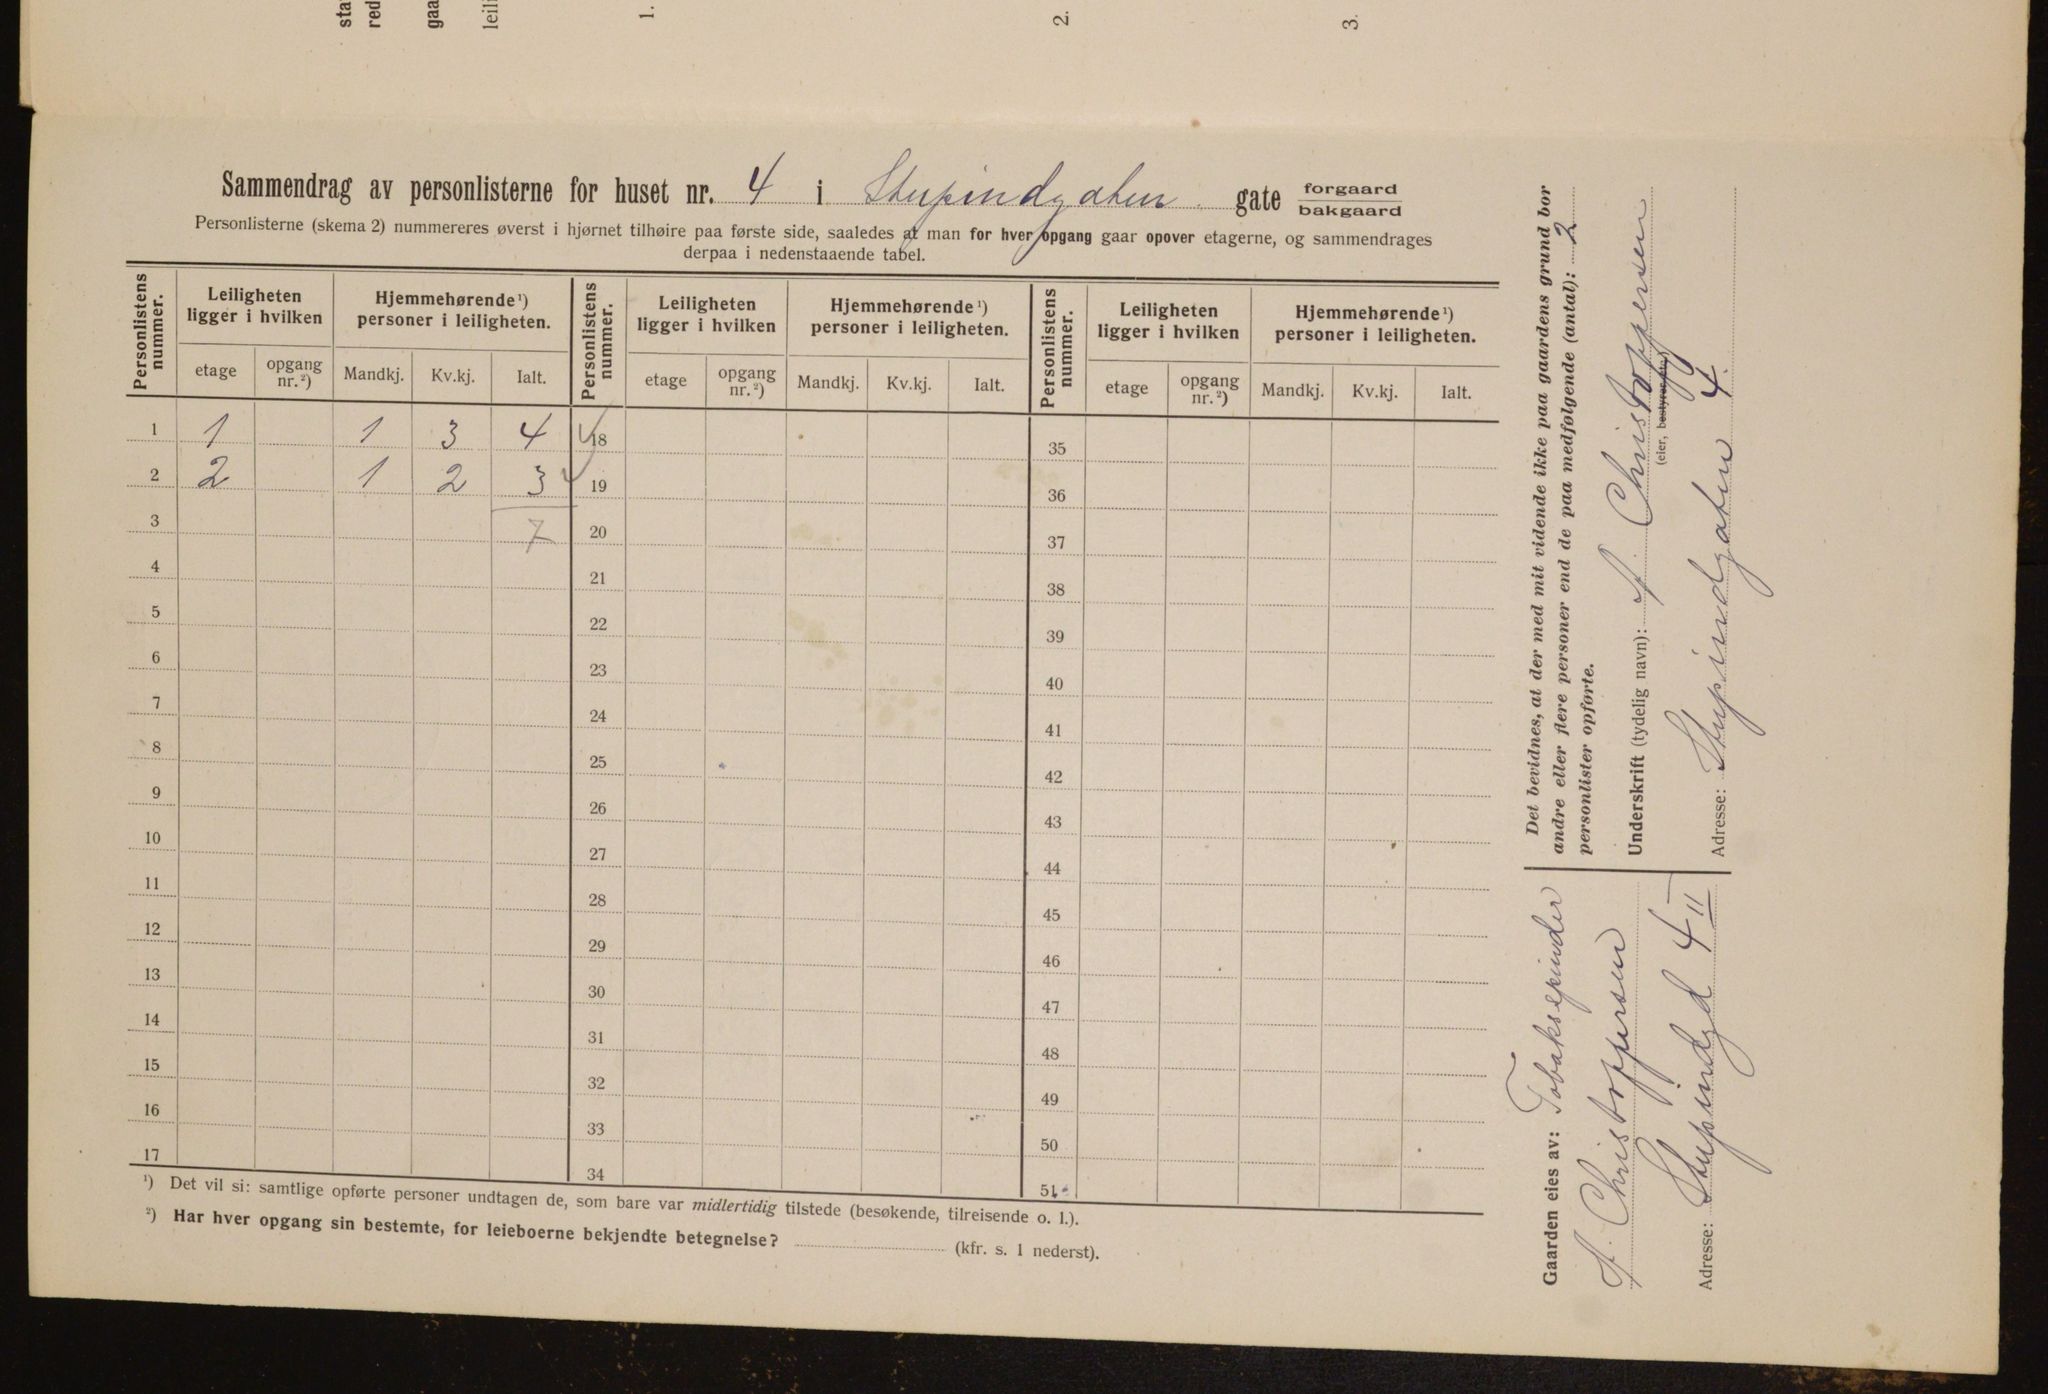 sta
red
gaa
leili
1.
2.
3.
Sammendrag av personlisterne for huset nr. 4 i Stupindgaten gate forgaard
bakgaard
Personlisterne (skema 2) nummereres øverst i hjørnet tilhøire paa første side, saaledes at man for hver opgang gaar opover etagerne, og sammendrages
derpaa i nedenstaaende tabel.
Personlistens nummer. Leiligheten ligger i hvilken Hjemmehørende¹) personer i leiligheten. Personlistens nummer. Leiligheten ligger i hvilken Hjemmehørende¹) personer i leiligheten. Personlistens nummer. Leiligheten ligger i hvilken Hjemmehørende¹) personer i leiligheten.
etage opgang nr.²) Mandkj. Kv.kj. Ialt. etage opgang nr.²) Mandkj. Kv.kj. Ialt. etage opgang nr.²) Mandkj. Kv.kj. Ialt.
1 1 1 3 4 18 35
2 2 1 2 3 19 36
3 7 20 37
4 21 38
5 22 39
6 23 40
7 24 41
8 25 42
9 26 43
10 27 44
11 28 45
12 29 46
13 30 47
14 31 48
15 32 49
16 33 50
17 34 51
¹) Det vil si: samtlige opførte personer undtagen de, som bare var midlertidig tilstede (besøkende, tilreisende o. l.).
²) Har hver opgang sin bestemte, for leieboerne bekjendte betegnelse? (kfr. s. 1 nederst).
Det bevidnes, at der med mit vidende ikke paa gaardens grund bor
andre eller flere personer end de paa medfølgende (antal): 2
personlister opførte.
Underskrift (tydelig navn): A. Christoppersen
(eier, bestyrer etc.)
Adresse: Stupindgaten 4.
Gaarden eies av: Tobakksspinder
A. Christoppersen
Adresse: Stupindgd 4 II